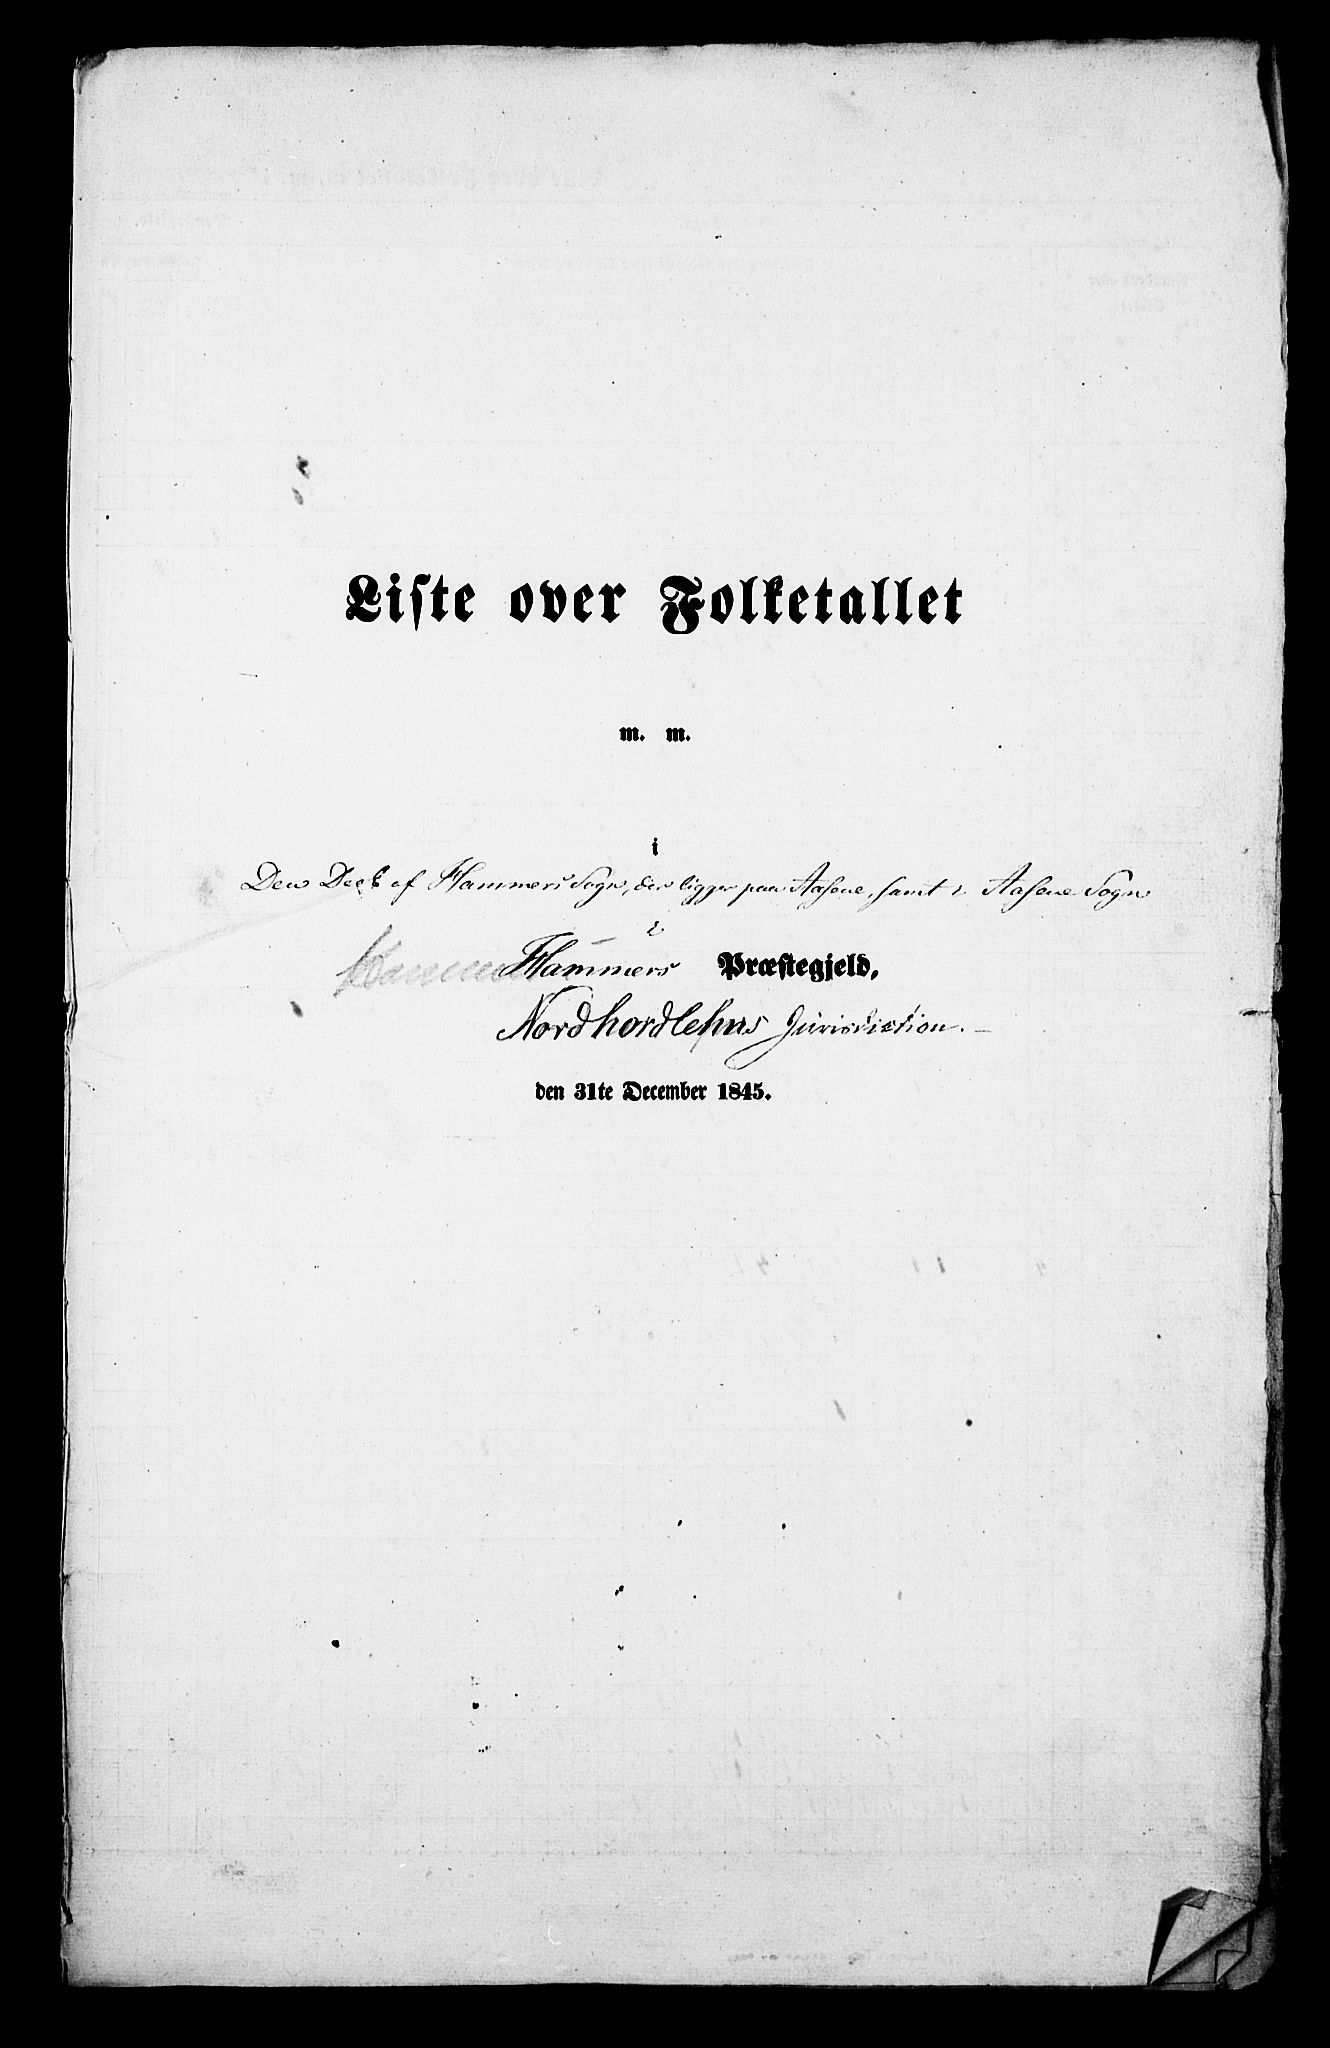 Liste over Folketallet
m. m.
i
Den Deel af Hammers Sogn, der ligger paa Aasene, samt i Aasene Sogn
i
Hammer Hammers Præstegjeld,
Nordhordlehns Jurisdiction.
den 31te December 1845.